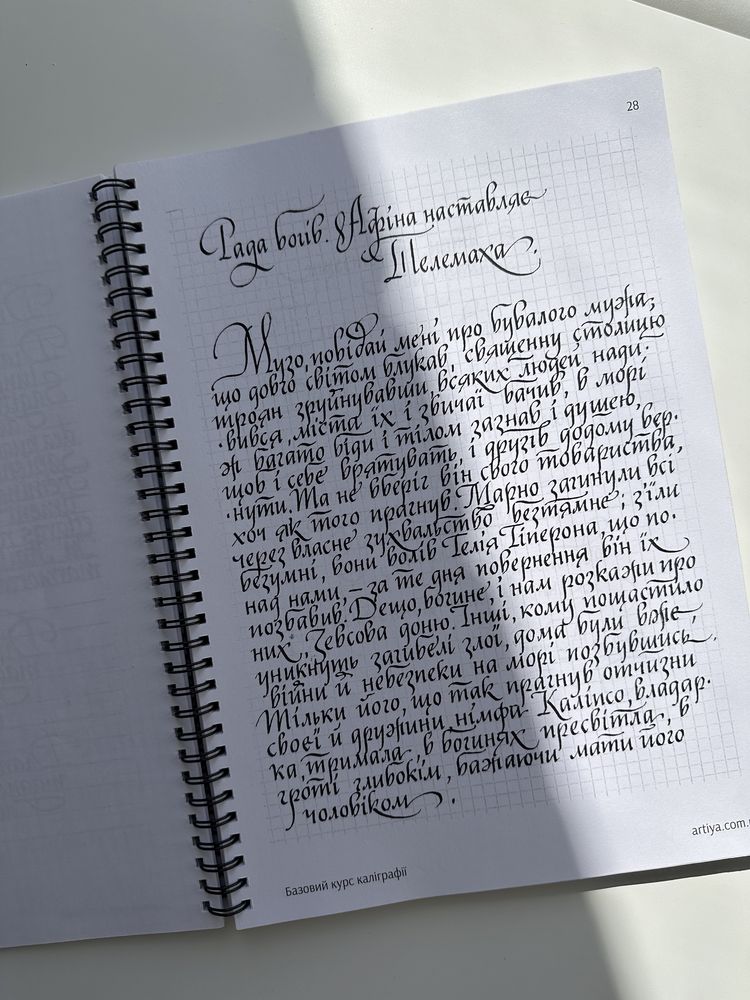 28
Рада богів. Афіна наставляє
Телемаха.
Музо, повідай мені про бувалого мужа,
що довго світом блукав, священну столицю
троян зруйнувавши, всяких людей нади-
-вився, міста їх і звичаї бачив, в морі
ж багато біди і тілом зазнав і душею,
щоб і себе врятувать, і друзів додому вер-
-нути. Та не вберіг він свого товариства,
хоч як того прагнув. Марно загинули всі
через власне зухвальство безтямне; з'їли
безумні, вони волів Гелія Гіперона, що по-
над нами, – за те дня повернення він їх
позбавив. Дещо, богине, і нам розкажи про
них, Зевсова доню. Інші, кому пощастило
уникнуть загибелі злої, дома були вже,
війни й небезпеки на морі позбувшись,
Тільки його, що так прагнув отчизни
своєї й дружини, німфа Каліпсо, владар-
ка, тримала, в богинях пресвітла, в
гроті глибокім, бажаючи мати його
чоловіком.
Базовий курс каліграфії
artiya.com.